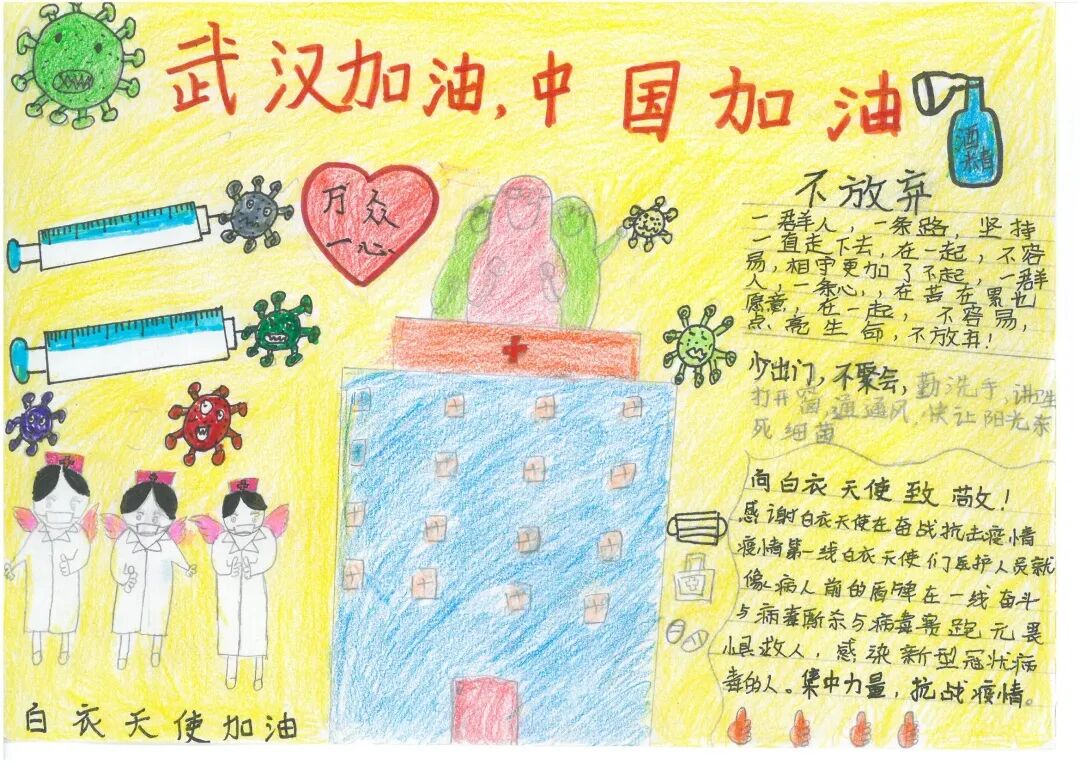 武汉加油,中国加油
酒精
万众
一心
不放弃
一群人,一条路,坚持
一直走下去,在一起,不容
易,相守更加了不起,一群
人,一条心,,在苦在累也
愿意,在一起,不容易,
点亮生命,不放弃!
少出门,不聚会,勤洗手,讲卫生
打开窗通通风,快让阳光杀
死细菌
向白衣天使致敬!
感谢白衣天使在奋战抗击疫情
疫情第一线白衣天使们医护人员就
像病人前的盾牌在一线奋斗
与病毒厮杀与病毒赛跑无畏
惧救人,感染新型冠状病
毒的人。集中力量,抗战疫情。
白衣天使加油